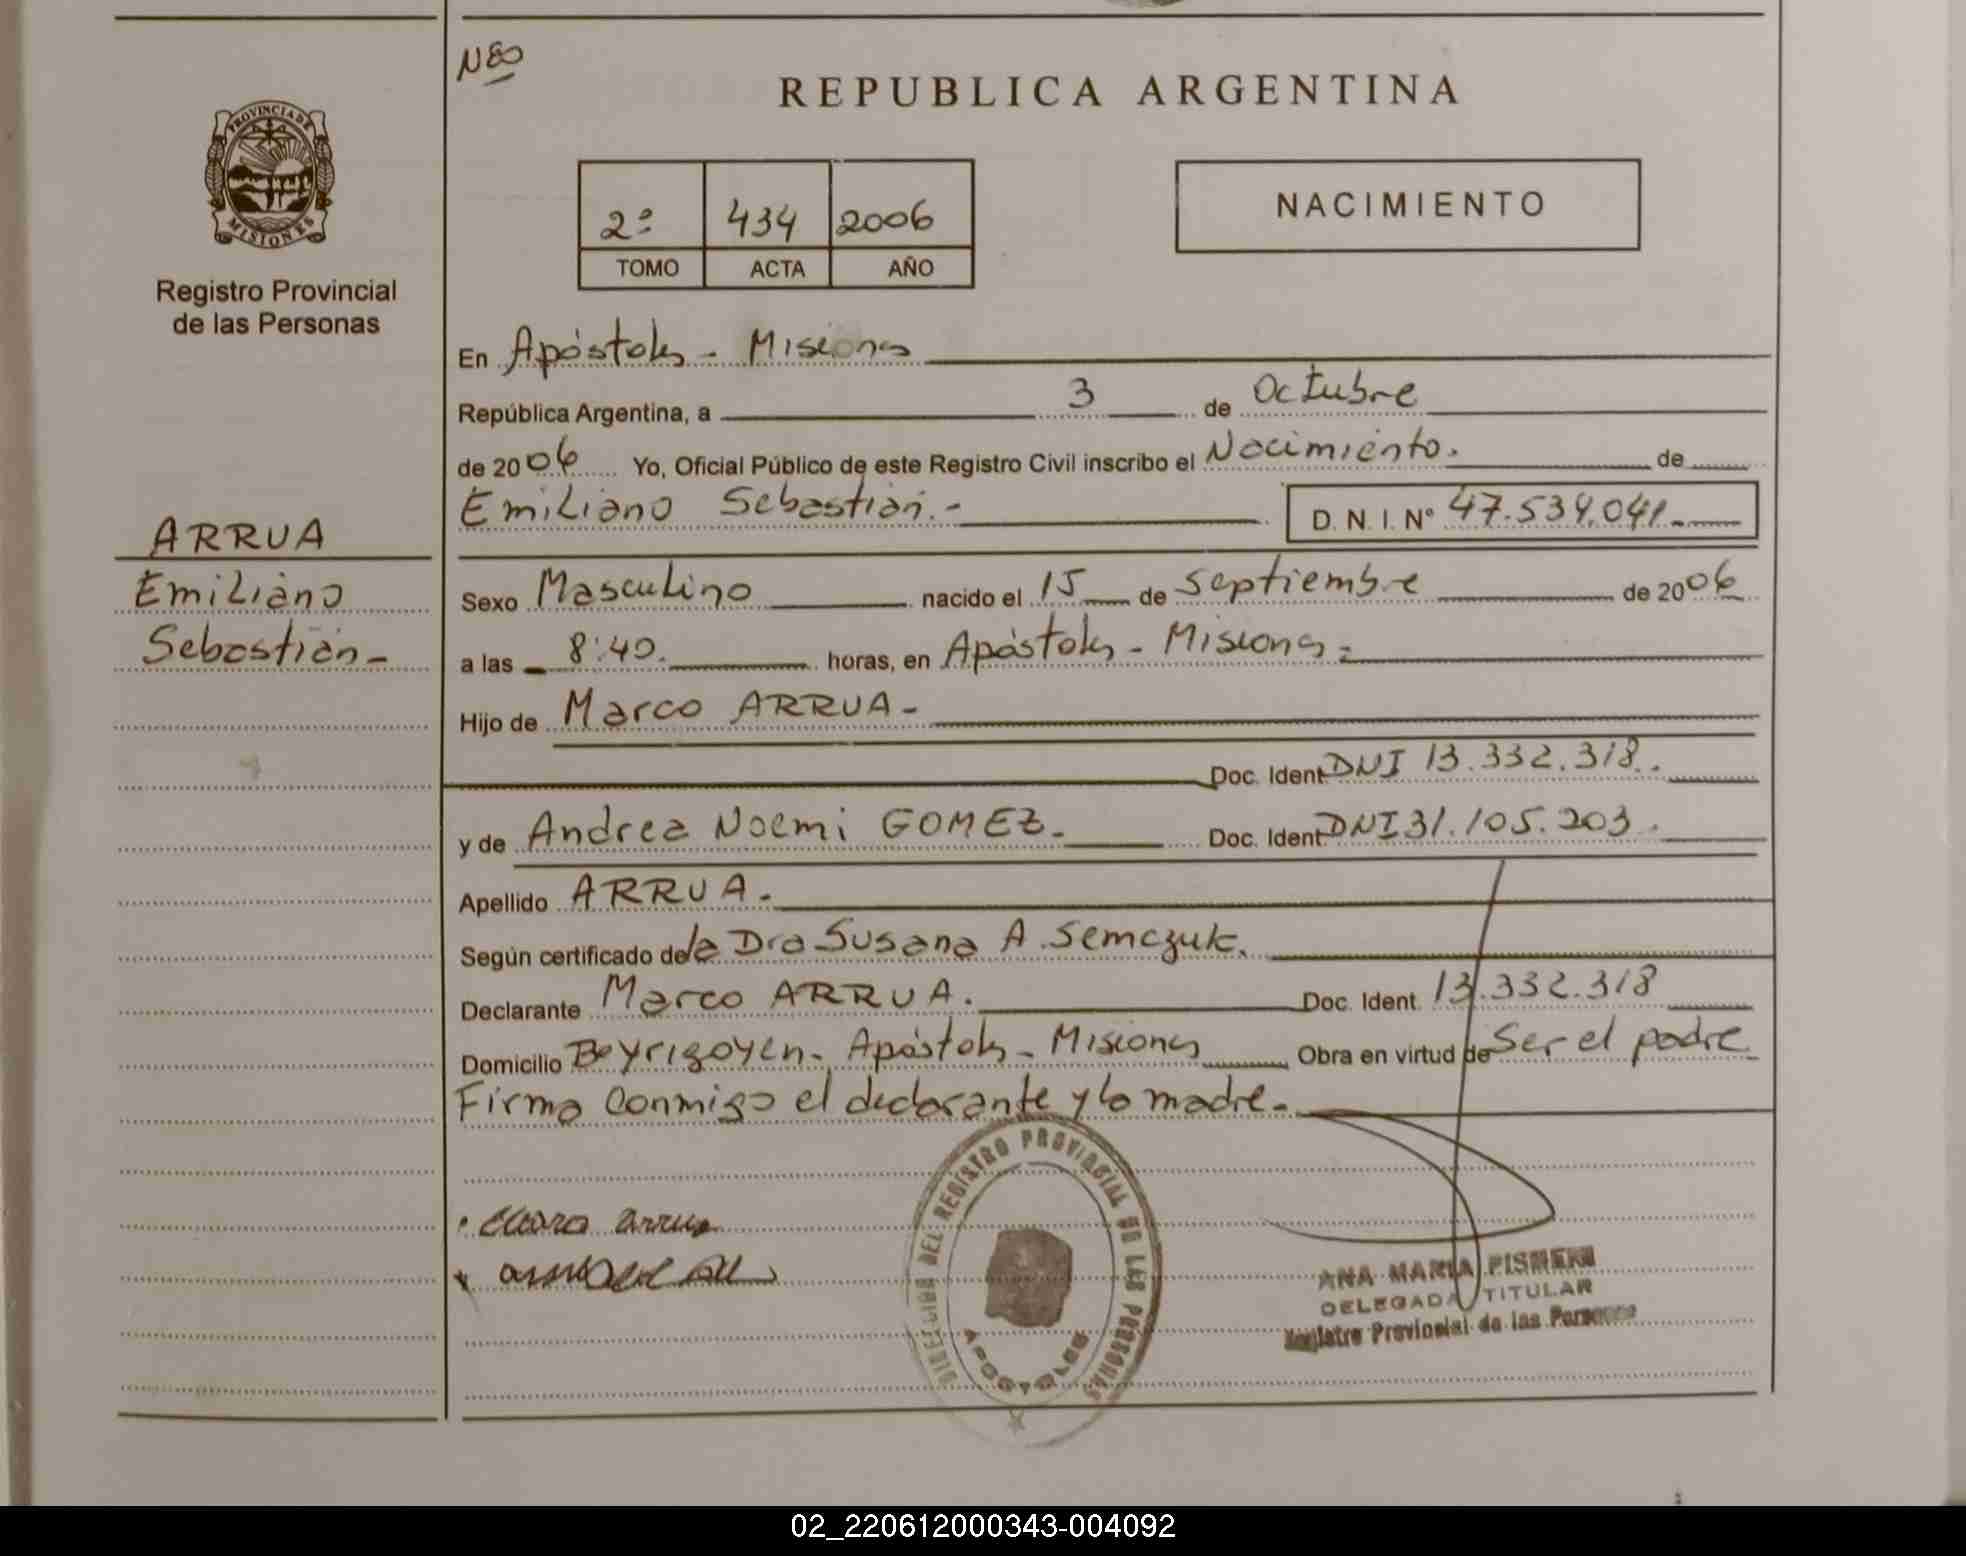 NEO
REPUBLICA ARGENTINA
PROVINCIA DE
MISIONES
Registro Provincial
de las Personas
2º 434 2006
TOMO ACTA AÑO
NACIMIENTO
En Apóstoles - Misiones
República Argentina, a 3 de Octubre
de 2006 Yo, Oficial Público de este Registro Civil inscribo el Nacimiento. de
Emiliano Sebastián.- D. N. I. Nº 47.534.041.-
ARRUA
Emiliano
Sebastián-
Sexo Masculino nacido el 15 de Septiembre de 2006
a las 8:40. horas, en Apóstoles - Misiones -
Hijo de Marco ARRUA -
Doc. Ident. DNI 13.332.318.
y de Andrea Noemi GOMEZ. Doc. Ident. DNI 31.105.203.
Apellido ARRUA.
Según certificado de la Dra Susana A. Semczuk.
Declarante Marco ARRUA. Doc. Ident. 13.332.318
Domicilio Bº Yrigoyen - Apóstoles - Misiones Obra en virtud de Ser el padre
Firma conmigo el declarante y la madre -
DIRECCION DEL REGISTRO PROVINCIAL DE LAS PERSONAS
APOSTOLES
arrua
ANA MARIA
DELEGADA TITULAR
Registro Provincial de las Personas
02_220612000343-004092